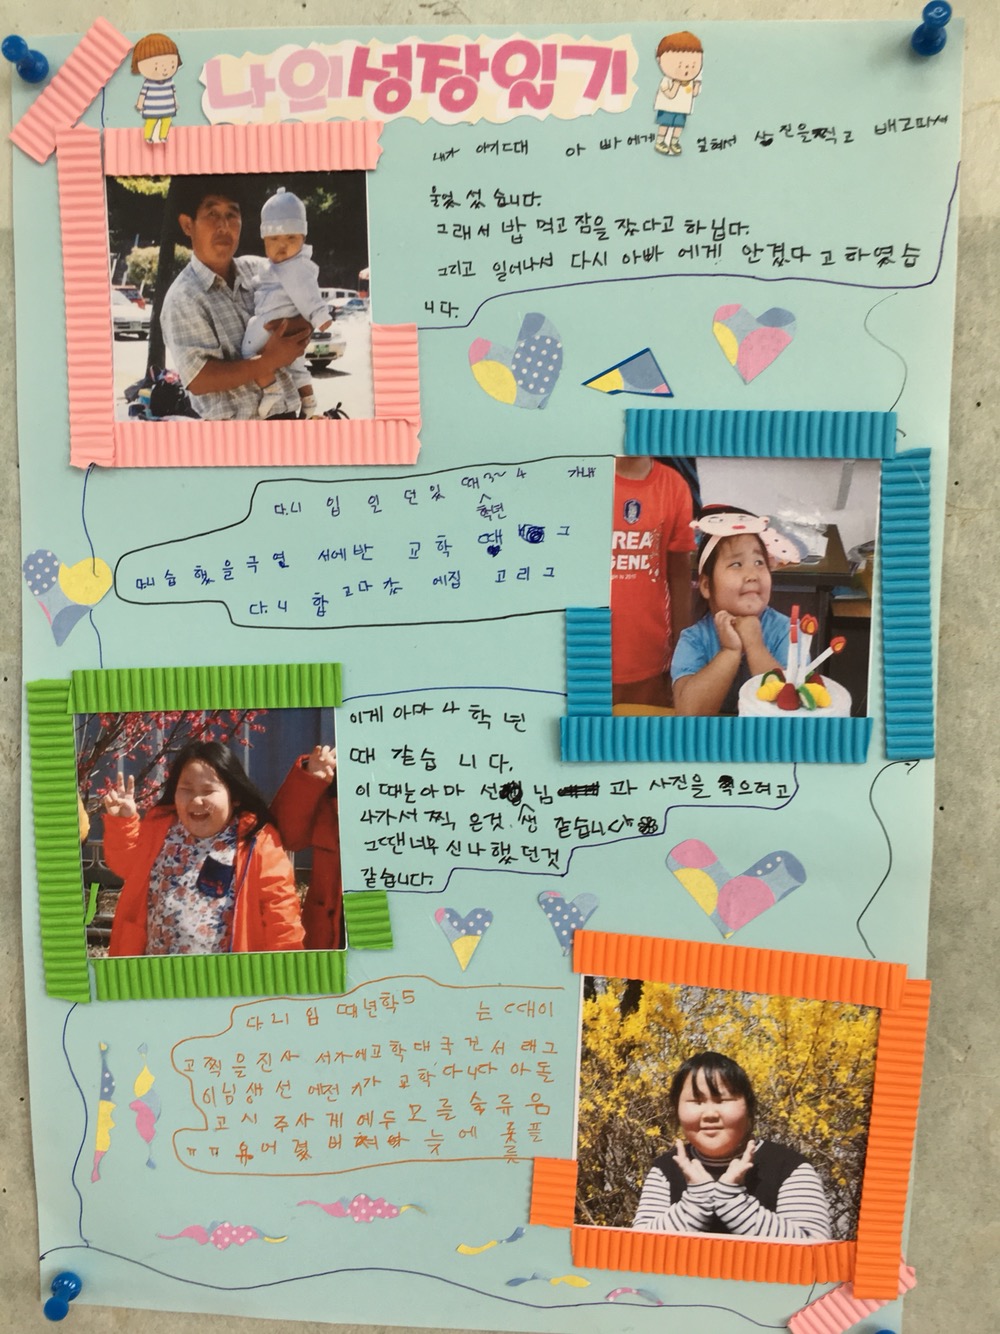 나의성장일기
내가 아기때 아빠에게 업혀서 사진을찍고 배고파서
울었섰습니다.
그래서 밥 먹고 잠을 잤다고 하닙다.
그리고 일어나서 다시 아빠에게 안겼다고하였습
니다.
내가 3~4학년때 있던일 입니다.
그때 학교 반에서 연극을 했습니
그리고 집에 갔 합니다.
REA
GEND
이게 아마 4학년
때 같습니다.
이때는아마 선님과 사진을 찍으려고
나가서 찍은것 같습니다
그땐너무 신나했던것
같습니다.
이때는 5학년때 입니다
그래서 건국대학교에가서 사진을찍고
돌아다니다 학교가기 전에 선생님이
음류 모두에게 사주시고
플룻 에 늦 버 어 ㅠㅠ